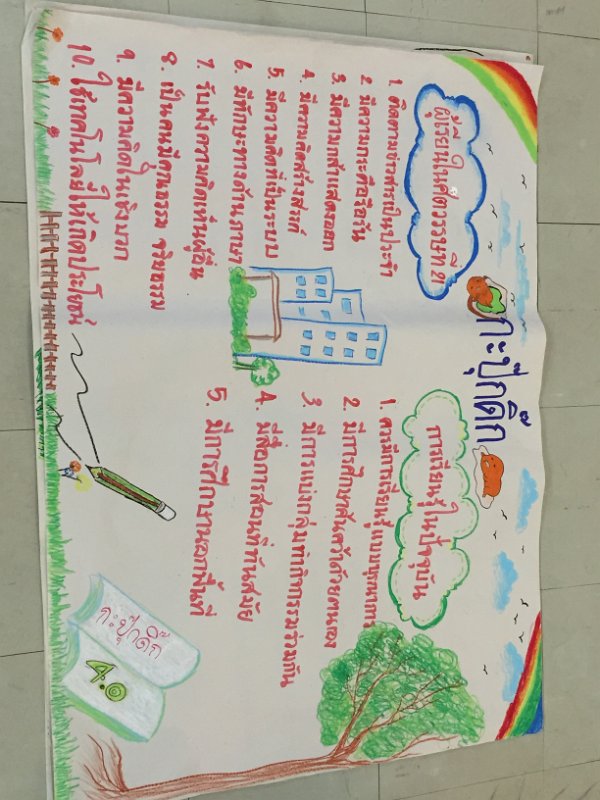 กะปุ๊กดิ๊ก
ผู้เรียนในศตวรรษที่ ๒๑
1. ติดตามข่าวสารเป็นประจำ
2. มีความกระตือรือร้น
3. มีความกล้าแสดงออก
4. มีความคิดสร้างสรรค์
5. มีความคิดที่เป็นระบบ
6. มีทักษะทางด้านภาษา
7. รับฟังความคิดเห็นผู้อื่น
8. เป็นคนมีคุณธรรม จริยธรรม
9. มีความคิดในเชิงบวก
10. ใช้เทคโนโลยีให้เกิดประโยชน์
การเรียนรู้ในปัจจุบัน
1. ควรมีการเรียนรู้แบบบูรณาการ
2. มีการศึกษาค้นคว้าด้วยตนเอง
3. มีการแบ่งกลุ่มทำกิจกรรมร่วมกัน
4. มีสื่อการสอนที่ทันสมัย
5. มีการศึกษานอกพื้นที่
กะปุ๊กดิ๊ก
4.0